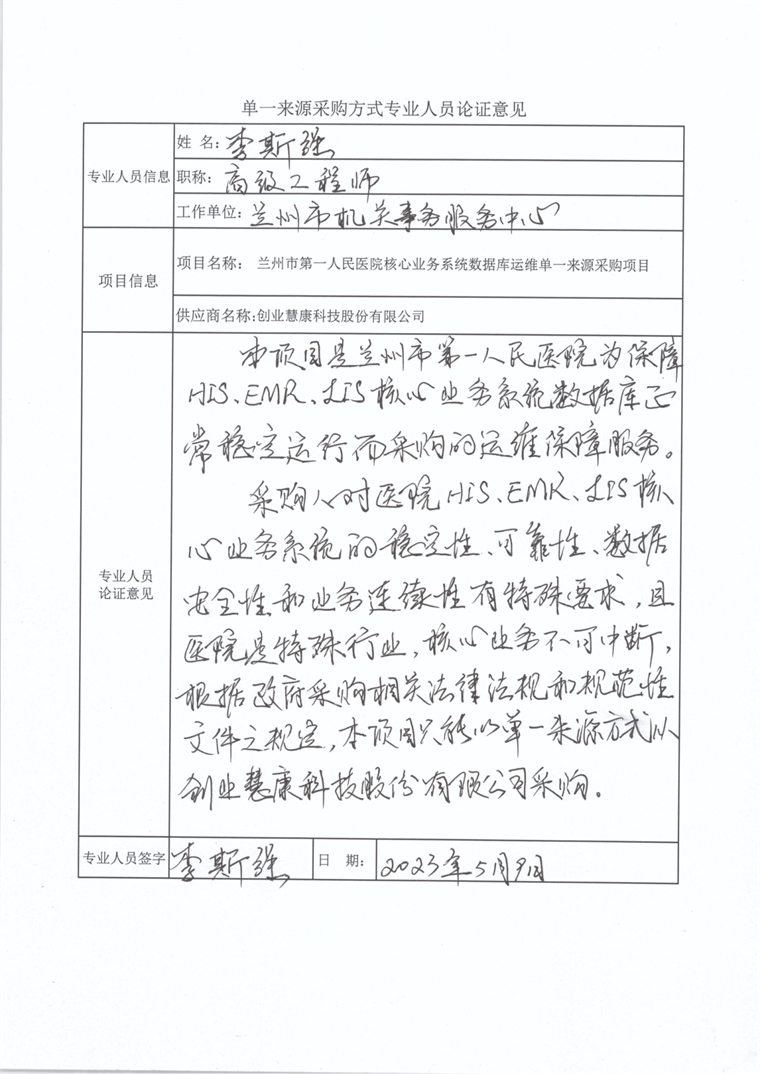 单一来源采购方式专业人员论证意见
专业人员信息
姓 名：李斯强
职称：高级工程师
工作单位：兰州市机关事务服务中心
项目信息
项目名称： 兰州市第一人民医院核心业务系统数据库运维单一来源采购项目
供应商名称：创业慧康科技股份有限公司
专业人员
论证意见
本项目是兰州市第一人民医院为保障
HIS、EMR、LIS核心业务系统数据库正
常稳定运行而采购的运维保障服务。
采购人对医院HIS、EMR、LIS核
心业务系统的稳定性、可靠性、数据
安全性和业务连续性有特殊要求，且
医院是特殊行业，核心业务不可中断，
根据政府采购相关法律法规和规范性
文件之规定，本项目只能以单一来源方式从
创业慧康科技股份有限公司采购。
专业人员签字
李斯强
日 期：
2023年5月9日